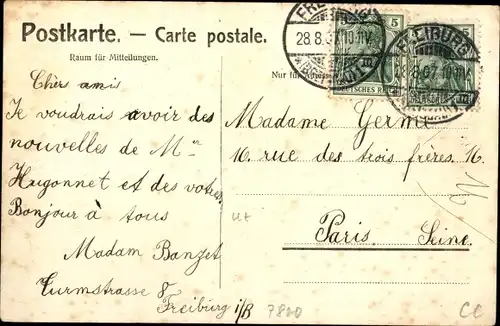 Postkarte. — Carte postale.
Raum für Mitteilungen.
Nur für Adresse
FREIBURG
28.8.07. 10-11V.
5
DEUTSCHES REICH
FREIBURG
28.8.07. 10-11V.
5
Chèrs amis
Je voudrais avoir des
nouvelles de Mr
Hugonnet et des votres.
Bonjour à tous
Madam Banzet
Turmstrasse 8
Freiburg i/B
Madame Germe
16. rue des trois frères. 16.
Paris. Seine.
7820